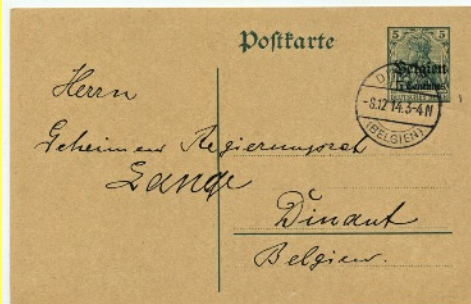 Postkarte
5 5
Belgien
5 Centimes
-8.12 14.3-4N
(BELGIEN)
Herrn
Geheimen Regierungsrat
Lange
Dinant
Belgien.